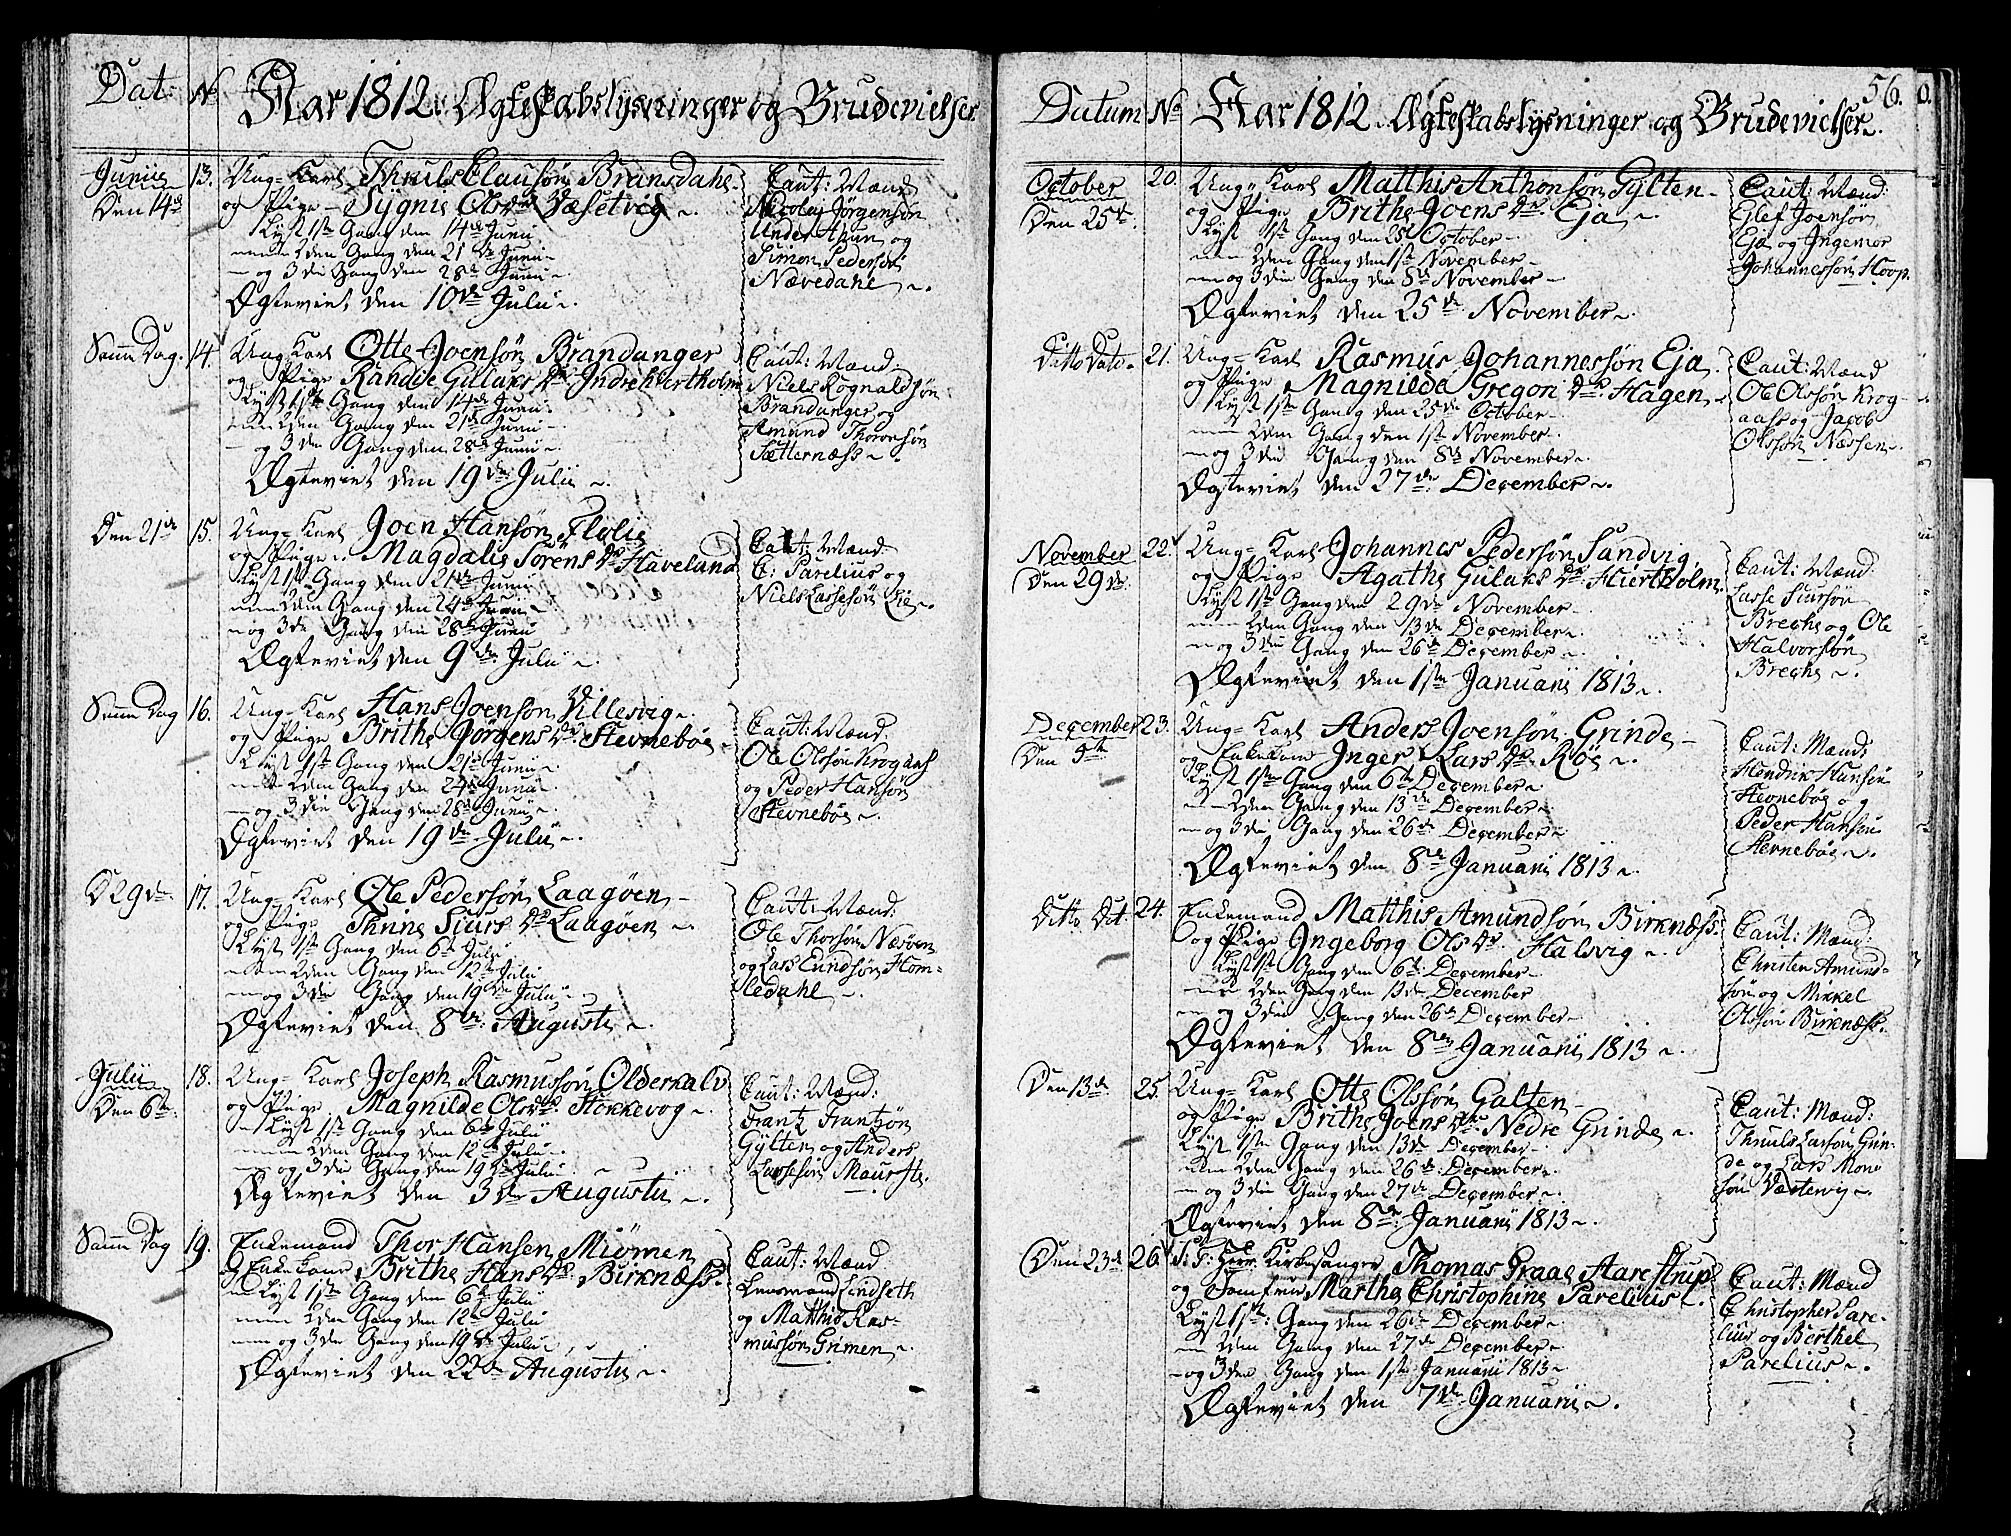 Dat: No Aar 1812. Ægteskabslysninger og Brudevielser
Junii 13. Ung-Karl Thruls Clausøn Bransdahl
Den 14de og Pige - Sygnie Olsdr Væsetvig
Lyst 1ste Gang den 14de Junii
2den Gang den 21de Junii
og 3die Gang den 28de Junii
Ægteviet den 10de Julii
Caut: Mænd
Nicolay Jørgensøn
Under Aaun og
Simon Pedersøn
Nævedahl
Samme Dag. 14. Ung Karl Otte Joensøn Brandanger
og Pige Randie Gulaks Dr Indre Hiertholm
Lyst 1ste Gang den 14de Junii
2den Gang den 21de Junii
og 3de Gang den 28de Junii
Ægteviet den 19de Julii
Caut: Mænd
Niels Rognaldsøn
Brandanger og
Amund Thoresøn
Sætternæss
Den 21de 15. Ung-Karl Joen Hansøn Flolie
og Pige Magdalis Sørens Dr Haveland
Lyst 1ste Gang den 21de Junii
2den Gang den 24de Junii
og 3de Gang den 28de Junii
Ægteviet den 9de Julii
Caut: Mænd
C: Parelius og
Niels Lassesøn Lie
Samme Dag 16. Ung-Karl Hans Joensøn Villesvig
og Pige Brithe Jørgens Dr Stevnebøe
Lyst 1ste Gang den 21de Junii
2den Gang den 24de Junii
og 3die Gang den 28de Junii
Ægteviet den 19de Julii
Caut: Mænd
Ole Olssøn Krogaas
og Peder Hansøn
Stevnebøe
D 29de 17. Ung-Karl Ole Pedersøn Laagøen
og Pige Thrine Siurs Dr Laagøen
Lyst 1ste Gang den 6te Julii
2den Gang den 12te Julii
og 3die Gang den 19de Julii
Ægteviet den 8de Augusti
Caut: Mænd:
Ole Thorsøn Næsøen
og Lars Eundsøn Hom-
ledahl
Julii 18. Ung-Karl Joseph Rasmussøn Oldernalv
Den 6te og Pige Magnilde Olsdr Stokkevog
Lyst 1ste Gang den 6te Julii
2den Gang den 12te Julii
og 3die Gang den 19de Julii
Ægteviet den 3de Augusti
Caut: Mænd:
Frantz Frantzøn
Gylten og Anders
Lassesøn Maurstr.
Samme Dag 19. Enkemand Thor Hansen Miømen
og Enkekone Brithe Hans Dr Birknæss
Lyst 1ste Gang den 6te Julii
2den Gang den 12te Julii
og 3die Gang den 19de Julii
Ægteviet den 22de Augusti
Caut: Mænd
Lensmand Lindseth
og Matthis Ras-
mussøn Grimen
56.
Datum No Aar 1812. Ægteskabslysninger og Brudevielser
October 20. Ung Karl Matthis Anthonsøn Gylten
Den 25de og Pige Brithe Joens Dr Eja
Lyst 1ste Gang den 25de October
2den Gang den 1ste November
og 3die Gang den 8de November
Ægteviet den 25de November
Caut: Mænd:
Elef Joensøn
Eja og Ingemor
Johannessøn Hoop
Ditto Dato 21. Ung-Karl Rasmus Johannessøn Eja
og Pige Magnilde Gregori Dr Hagen
Lyst 1ste Gang den 25de October
2den Gang den 1ste November
og 3die Gang den 8de November
Ægteviet den 27de December
Caut: Mænd
Ole Olsøn Krog-
aass og Jacob
Olssøn Næssen
November 22. Ung-Karl Johannes Pedersøn Sandvig
Den 29de og Pige Agathe Gulaks Dr Hiertholm
Lyst 1ste Gang den 29de November
2den Gang den 13de December
og 3die Gang den 26de December
Ægteviet den 1ste Januarii 1813
Caut: Mænd
Lasse Siursøn
Breche og Ole
Halvorsøn
Breche
December 23. Ung-Karl Anders Joensøn Grinde
Den 9te og Enkekone Inger Lars Dr Røe
Lyst 1ste Gang den 6te December
2den Gang den 13de December
og 3die Gang den 26de December
Ægteviet den 8de Januarii 1813
Caut: Mænd:
Hendrik Hansøn
Stevnebøe og
Peder Hansøn
Stevnebøe
Ditto Dat. 24. Enkemand Matthis Amundsøn Birknæss
og Pige Ingeborg Ols Dr Halsvig
Lyst 1ste Gang den 6te December
2den Gang den 13de December
og 3die Gang den 26de December
Ægteviet den 8de Januarii 1813
Caut: Mænd:
Christen Amund-
søn og Mikkel
Olssøn Birknæss
Den 13de 25. Ung-Karl Otte Olssøn Galten
og Pige Brithe Joens Dr Nedre Grinde
Lyst 1ste Gang den 13de December
2den Gang den 26de December
og 3die Gang den 27de December
Ægteviet den 8de Januarii 1813
Caut: Mænd:
Thruls Larsøn Grin-
de og Lars Mons
søn Væstevig
Den 23de 26. S: T: Herr Kirkesanger Thomas Graae Aarestrup
og Jomfrue Martha Christophine Parelius
Lyst 1ste Gang den 26de December
2den Gang den 27de December
og 3die Gang den 1ste Januarii 1813
Ægteviet den 7de Januarii
Caut: Mænd
Christopher Pare-
lius og Berthel
Parelius